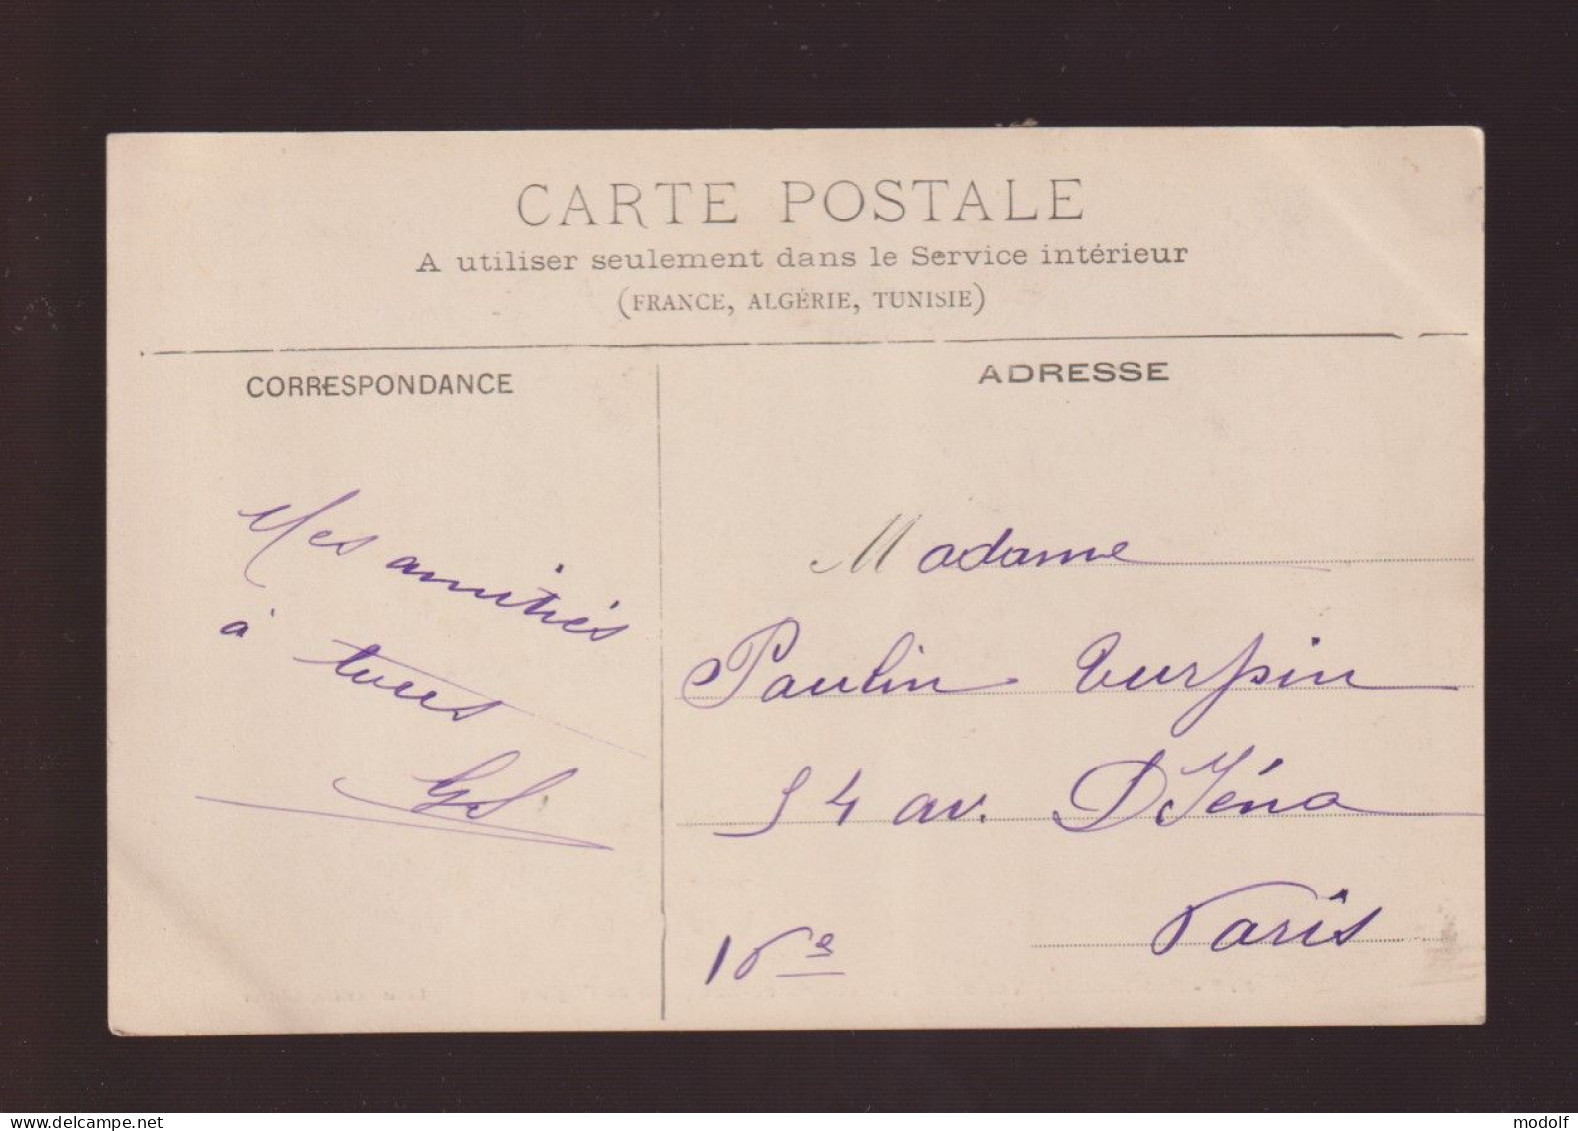 CARTE POSTALE
A utiliser seulement dans le Service intérieur
(FRANCE, ALGÉRIE, TUNISIE)
CORRESPONDANCE
Mes
amitiés
à tous
ADRESSE
Madame
Paulin Turpin
54 av. D'Iéna
Paris
16e
www.delcampe.net
modolf